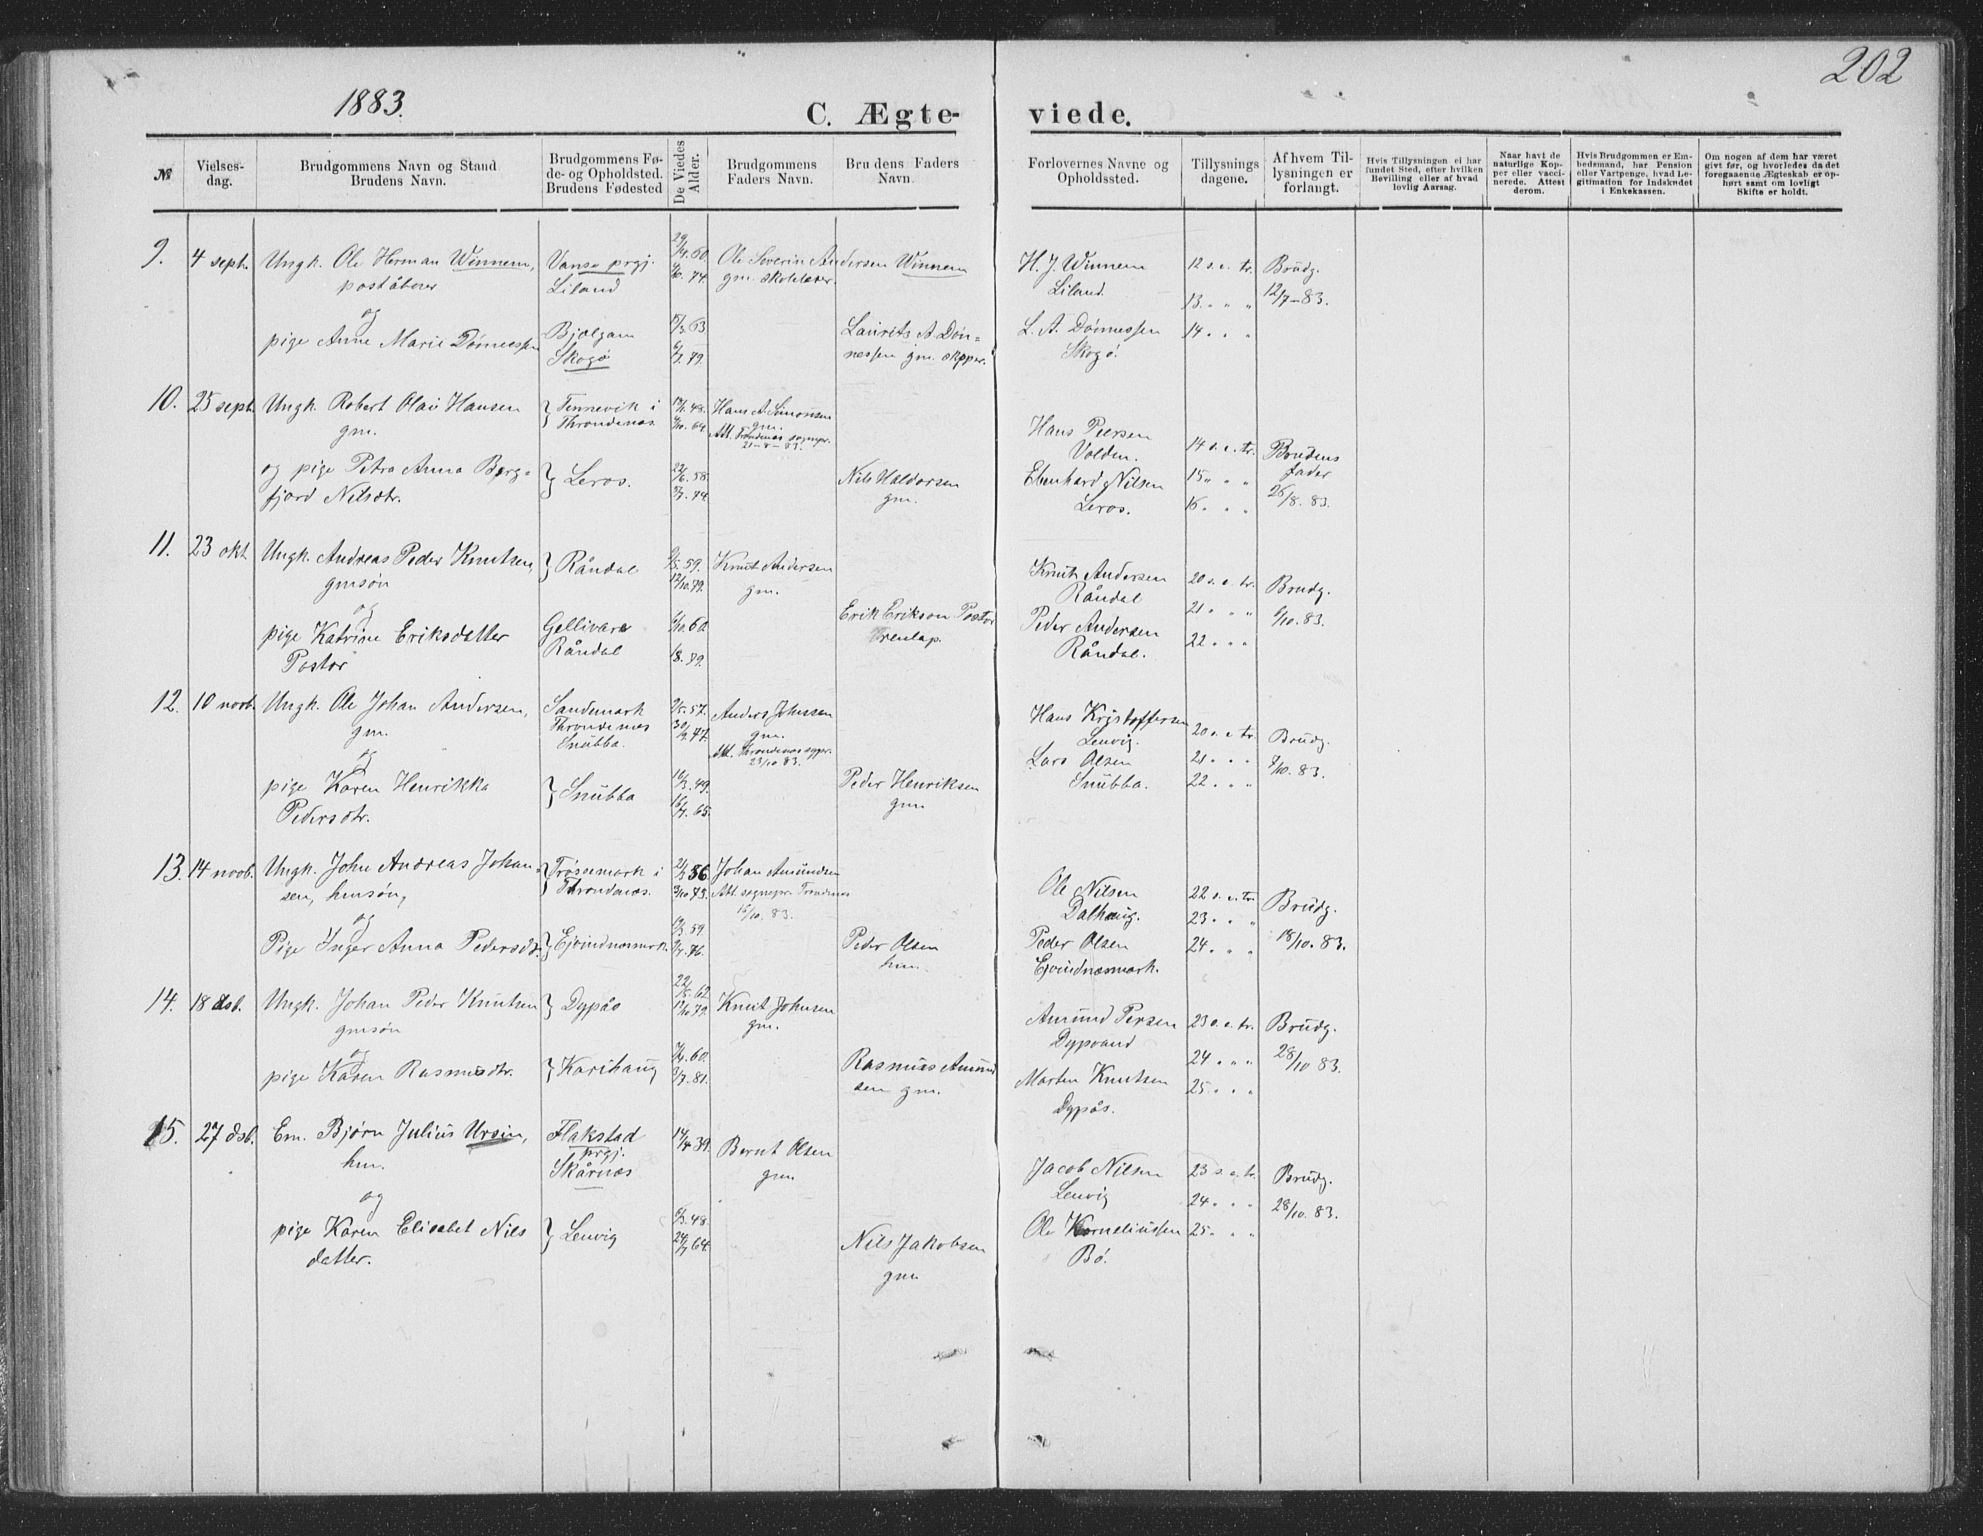 202
1883.
C. Ægte-
viede.
№
Vielses-
dag.
Brudgommens Navn og Stand
Brudens Navn.
Brudgommens Fø-
de- og Opholdsted.
Brudens Fødested
De Viedes
Alder.
Brudgommens
Faders Navn.
Brudens Faders
Navn.
Forlovernes Navne og
Opholdssted.
Tillysnings
dagene.
Af hvem Til-
lysningen er
forlangt.
Hvis Tillysningen ei har
fundet Sted, efter hvilken
Bevilling eller af hvad
lovlig Aarsag.
Naar havt de
naturlige Kop-
per eller vacci-
nerede. Attest
derom.
Hvis Brudgommen er Em-
bedsmand, har Pension
eller Vartpenge, hvad Le-
gitimation for Indskudet
i Enkekassen.
Om nogen af dem har været
givt før, og hvorledes da det
foregaaenue Ægteskab er op-
hørt samt om lovligt
Skifte er holdt.
9. 4 sept. Ungk. Ole Herman Winnem,
poståbner
og
pige Anne Marie Dønnessen
Vanse prgj.
Liland
Bjelgam
Skogø
29/4. 60.
74.
63
79.
Ole Severin Andersen Winnem
gm. skolelærer.
Laurits A. Døn-
nessen gm. skipper.
H. J. Winnem
Liland.
L. A. Dønnessen
Skogø.
12 s. e. tr.
13. " " "
14 " " "
Brudg.
12/7-83.
10. 25 sept. Ungk. Robert Olai Hansen
gm.
og pige Petra Anna Berg-
fjord Nilsdtr.
Tennevik i
Throndenæs.
Leros.
48.
64
58.
74
Hans A. Simonsen
gm.
Att. Trondenæs sognepr.
21-8-83.
Nils Haldorsen
gm.
Hans Persen
Volden.
Ebenhard Nilsen
Leros.
14 s. e. tr.
15 " " "
16 " " "
Brudens
fader
26/8. 83.
11. 23 okt. Ungk. Andreas Peder Knutsen,
gmsøn
og
pige Katrine Eriksdatter
Postor
Råndal
Gellivare
Råndal
59.
12/10. 79.
60.
18. 79.
Knut Andersen
gm.
Erik Erikson Postor
renlap.
Knut Andersen
Råndal
Peder Andersen
Råndal.
20 s. e. tr.
21 " " "
22 " " "
Brudg.
6/10. 83.
12. 10 novb. Ungk. Ole Johan Andersen,
gm.
og
pige Karen Henrikka
Pedersdtr.
Sandemark
Throndenæs
Snubba.
Snubba
57.
77.
49.
65.
Anders Johnsen
gm.
Att. Throndenæs sgpr.
23/10 83.
Peder Henriksen
gm
Hans Kristoffersen
Lenvig.
Lars Olsen
Snubba.
20 s. e. tr.
21 " " "
22 " " "
Brudg.
8/10. 83.
13. 14 novb. Ungk. John Andreas Johan-
sen, hmsøn,
og
Pige Inger Anna Pedersdtr.
Trøssemark i
Throndenæs.
Ejvindnæsmark.
56
73.
59
76.
Johan Amundsen
Att. sognepr. Trondenæs
16/10. 83.
Peder Olsen
hm.
Ole Nilsen
Dalhaug.
Peder Olsen
Ejvindnæsmark.
22 s. e. tr.
23 " " "
24 " " "
Brudg.
18/10. 83.
14. 18 dsb. Ungk. Johan Peder Knutsen
gmsøn
og
pige Karen Rasmusdtr.
Dypås
Karihaug
62
79.
60.
81.
Knut Johnsen
gm.
Rasmus Amund
sen gm.
Amund Persen
Dypvand
Morten Knutsen
Dypås.
23 s. e. tr.
24 " " "
25 " " "
Brudg.
28/10 83.
15. 27 dsb. Em. Bjørn Julius Ursin,
hm.
og
pige Karen Elisabet Nils
datter.
Flakstad
prgj.
Skårnæs
Lenvig
14/4 39.
48.
64.
Bernt Olsen
gm
Nils Jakobsen
gm
Jacob Nilsen
Lenvig
Ole Korneliussen
Bø.
23 s. e. tr.
24 " " "
25 " " "
Brudg.
28/10. 83.